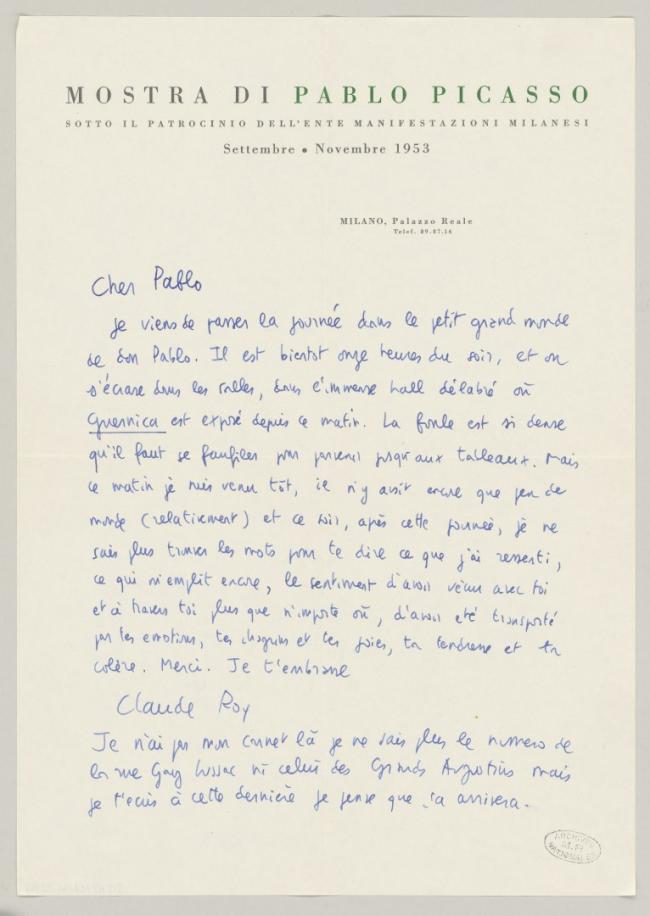 MOSTRA DI PABLO PICASSO
SOTTO IL PATROCINIO DELL'ENTE MANIFESTAZIONI MILANESI
Settembre • Novembre 1953
MILANO, Palazzo Reale
Telef. 89.07.16
Cher Pablo
je viens de passer la journée dans le petit grand monde
de don Pablo. Il est bientot onze heures du soir, et on
s'écrase dans les salles, dans l'immense hall délabré où
Guernica est exposé depuis ce matin. La foule est si dense
qu'il faut se faufiler pour parvenir jusqu'aux tableaux. Mais
ce matin je suis venu tôt, il n'y avait encore que peu de
monde (relativement) et ce soir, après cette journée, je ne
sais plus trouver les mots pour te dire ce que j'ai ressenti,
ce qui m'emplit encore, le sentiment d'avoir vécu avec toi
et à travers toi plus que n'importe où, d'avoir été transporté
par tes emotions, tes chagrins et tes joies, ta tendresse et ta
colère. Merci. Je t'embrasse
Claude Roy
Je n'ai pas mon carnet là je ne sais plus le numero de
la rue Gay Lussac ni celui des Grands Augustins mais
je t'ecris à cette dernière je pense que ça arrivera.
ARCHIVES
NATIONALES